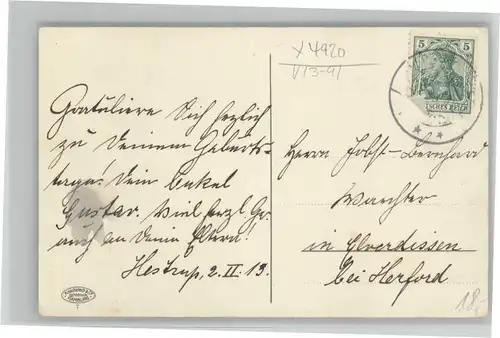 x 4920
V13-91
5 5
DEUTSCHES REICH
Gratuliere Dich herzlich
zu Deinem Geburts-
tage! Dein Onkel
Gustav. Viel herzl. Gr.
auch an Deine Eltern!
2. II. 13.
Herrn Jobst-Bernhard
Waechter
in Elverdissen
bei Herford
18,-